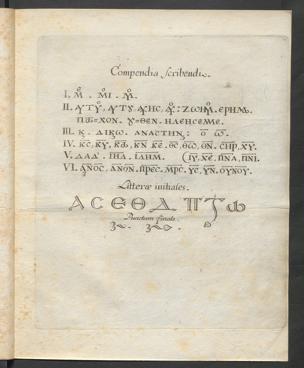 Compendia scribendi.
I. M̊. M̊I. M̊.
II. ΖΩΗ ΕΡΗΜ
ΠΡΟΕΧΟΝ. ΗΛΕΗCΕΜΕ
III. Κ. ΔΙΚΩ. ΑΝΑCΤΗΝ : Ο̅ Ω̅.
IV. Κ̅C̅. Κ̅Υ̅. Κ̅Ω̅. Κ̅Ν̅ Κ̅Ε̅. Θ̅C̅. Θ̅Ω̅. Θ̅Ν̅. C̅Η̅Ρ̅. Χ̅Υ̅.
V. Δ̅Α̅Δ̅. Ι̅Η̅Λ̅. Ι̅Λ̅Η̅Μ̅. (Ι̅Υ̅. Χ̅Ε̅. Π̅Ν̅Α̅. Π̅Ν̅Ι̅.
VI. Α̅Ν̅Ο̅C̅. Α̅Ν̅Ο̅Ν̅. Π̅Ρ̅Ε̅C̅. Μ̅Ρ̅C̅. Υ̅C̅. Υ̅Ν̅. ΟΥΝΟΥ.
Litteræ initiales.
Α C Ε Θ Δ Π Τ Ω
Punctum finale.